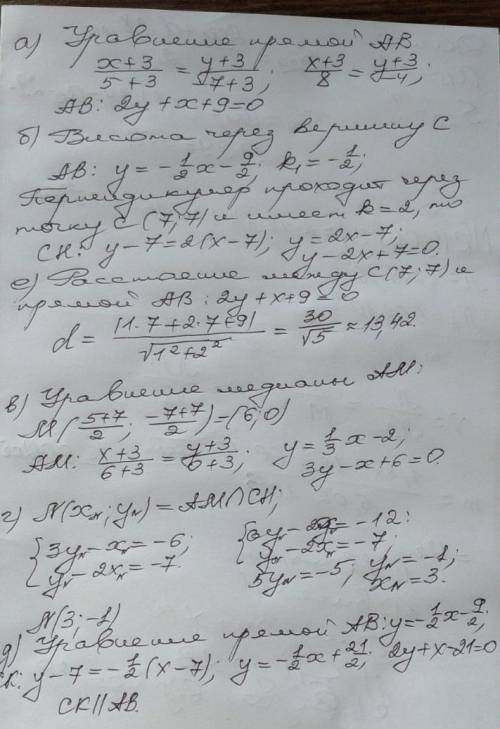 а) Уравнение прямой АВ
x+3/5+3 = y+3/-7+3; x+3/8 = y+3/-4;
АВ: 2y+x+9=0
б) Высота через вершину С
АВ: y = -1/2x - 9/2; k₁ = -1/2;
Перпендикуляр проходит через
точку С (7;7) и имеет k=2, то
СН: y-7=2(x-7); y=2x-7;
y-2x+7=0.
е) Расстояние между С(7;7) и
прямой АВ: 2y+x+9=0
d = |1·7+2·7+9|/√1²+2² = 30/√5 ≈ 13,42.
в) Уравнение медианы АМ:
М(5+7/2; -7+7/2) = (6;0)
АМ: x+3/6+3 = y+3/0+3; y = 1/3x-2;
3y-x+6=0.
г) N(x_N; y_N) = AM∩CH;
{3y_N-x_N=-6, {6y_N-2x_N=-12:
y_N-2x_N=-7. y_N-2x_N=-7.
5y_N=-5; y_N=-1;
x_N=3.
N(3;-1)
д) Уравнение прямой АВ: y=-1/2x-9/2;
СК: y-7=-1/2(x-7); y=-1/2x+21/2; 2y+x-21=0
СК||АВ.